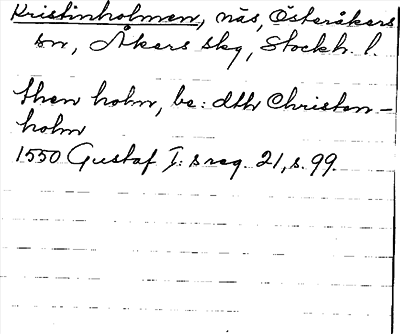 Kristinholmen, näs, Österåkers
sn, Åkers skg, Stockh. l.
then holm, be: dth Christen-
holm
1550 Gustaf I: s reg. 21, s. 99.